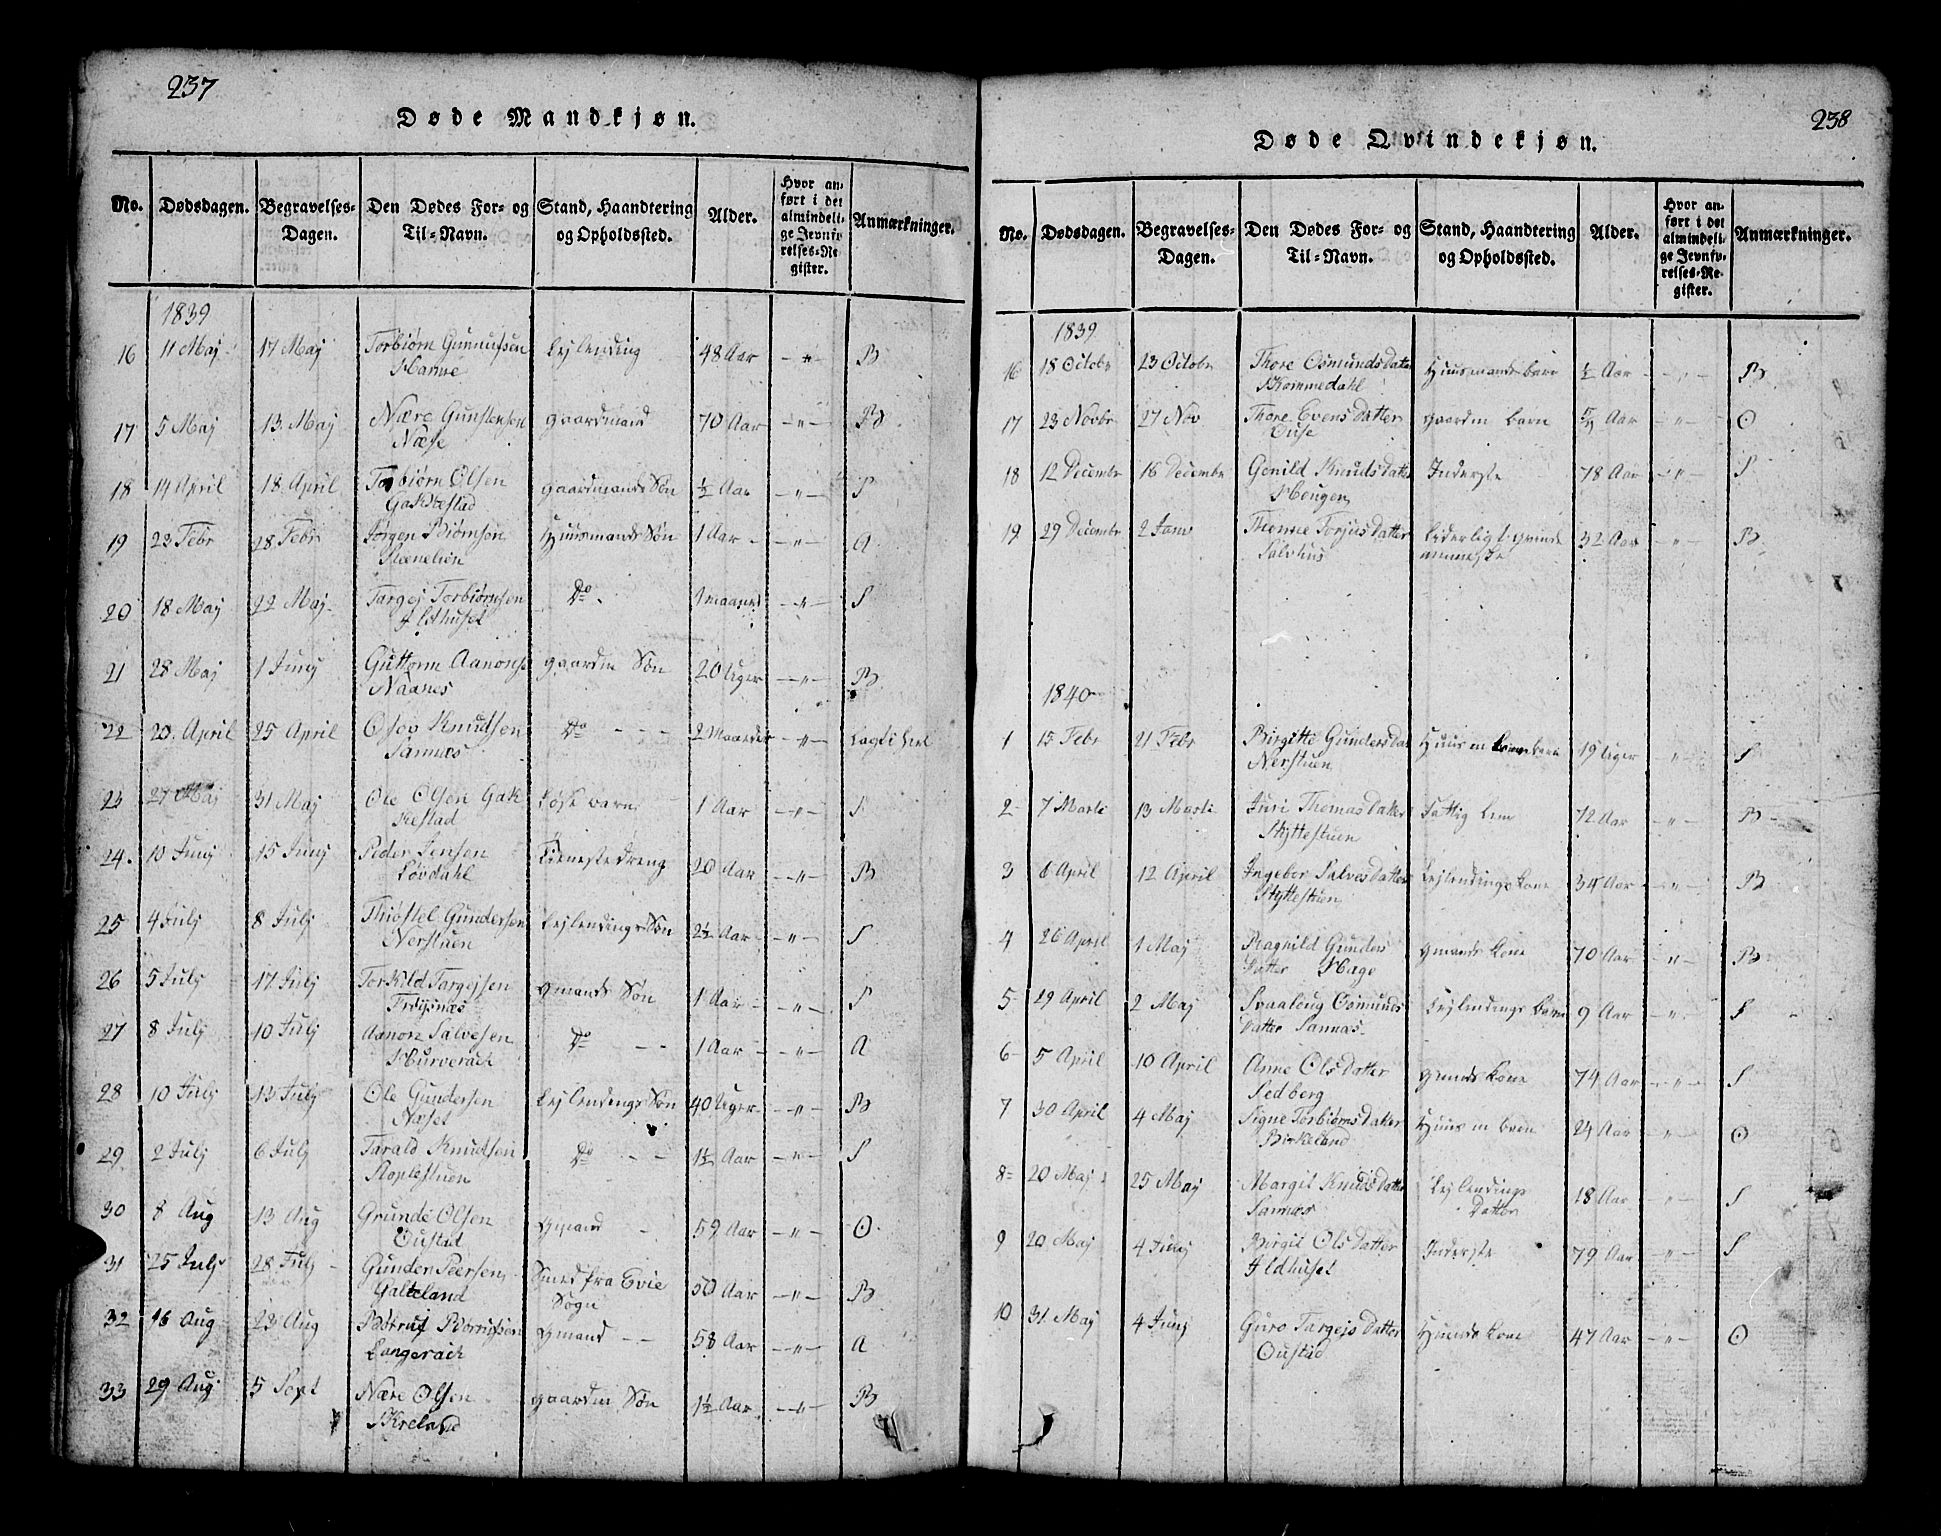 237
Døde Mandkjøn.
No. Dødsdagen. Begravelses-Dagen. Den Dødes For- og Til-Navn. Stand, Haandtering og Opholdssted. Alder. Hvor anført i det almindelige Jevnførelses-Register. Anmærkninger.
1839
16 11 Maj 17 Maj Torbiørn Gunnufsen Lejlending 48 Aar — " — B
17 5 Maj 13 Maj Nære Gunstensen gaardmand 70 Aar — " — B
Næse
18 14 April 18 April Torbiørn Olsen gaardmands Søn ½ Aar — " — S
Gakkestad
19 23 Febr 28 Febr Jørgen Biørnsen Huusmands Søn 1 Aar — " — A
20 18 Maj 22 Maj Targej Torbiørnsen Do 1 maaned — " — S
Ildhuset
21 28 Maj 1 Junj Guttorm Aanons gaardm Søn 20 Uger — " — B
Naanes
22 20 April 25 April Olav Knudsen Do 2 Maaneder — " —
Sannæs
23 27 Maj 31 Maj Ole Olsen Gak- 1 Aar — " — S
kestad
24 10 Junj 15 Junj Peder Jensen Tienestedreng 20 Aar — " — B
Løvdahl
25 4 Julj 8 Julj Thiøstel Gundersen Lejlendings Søn 2½ Aar — " — S
Nerstuen
26 5 Julj 17 Julj Torkild Targejsen Gmands Søn 1 Aar — " — S
Frøysnæs
27 8 Julj 10 Julj Aanon Salvesen Do 1 Aar — " — A
Hurverack
28 10 Julj 13 Julj Ole Gundersen Lejlendings Søn 40 Uger — " — B
Næset
29 2 Julj 6 Julj Tarald Knudsen Do 1½ Aar — " — S
30 8 Aug 13 Aug Grunde Olsen Gmand 59 Aar — " — O
Oustad
31 25 Julj 28 Julj Gunder Peersen Smed fra Evie 50 Aar — " — B
Galteland Sogn
32 16 Aug 23 Aug Gmand 58 Aar — " — A
Langerack
33 29 Aug 5 Sept Nære Olsen gaardm Søn 1½ Aar — " — B
Kreland
238
Døde Qvindekjøn.
No. Dødsdagen. Begravelses-Dagen. Den Dødes For- og Til-Navn. Stand, Haandtering og Opholdssted. Alder. Hvor anført i det almindelige Jevnførelses-Register. Anmærkninger.
1839
16 18 Octobr 23 Octobr Thore Osmunds Datter Huusmands barn ½ Aar — " — B
Kommedahl
17 23 Novbr 27 Nov Thore Evens Datter gaardm barn Aar — " — O
Ouse
18 12 Decembr 16 Decembr Gunild Knuds Datter Inderste 78 Aar — " — S
Hougen
19 29 Decembr 2 Janv Torjus Datter Liderligt qvinde 32 Aar — " — B
Salvhus menneske
1840
1 15 Febr 21 Febr Birgitte Gunders Dat Huus m barn 19 Uger — " — S
Nerstuen
2 7 Marti 13 Marti Juri Thomas Datter Fattig Lem 72 Aar — " — B
Styttestuen
3 6 April 12 April Ingebor Salves Datter Lejlendings Kone 34 Aar — " — B
Styttestuen
4 26 April 1 Maj Ragnild Gunders gmands Kone 70 Aar — " — B
Datter Hage
5 29 April 2 Maj Svaaloug Osmunds Lejlendings Barn 9 Aar — " — S
Datter Sannæs
6 5 April 10 April Anne Ols Datter gmands Kone 74 Aar — " — S
Sedberg
7 30 April 4 Maj Signe Torbiørns Datter Huus m barn 24 Aar — " — O
Birkeland
8 20 Maj 25 Maj Margit Knuds Datter Lejlendings 18 Aar — " — S
Sannæs Datter
9 20 Maj 4 Junj Birgit Ols Datter Inderste 79 Aar — " — S
Ildhuset
10 31 Maj 4 Junj Guro Targejs Datter Kone 47 Aar — " — O
Oustad